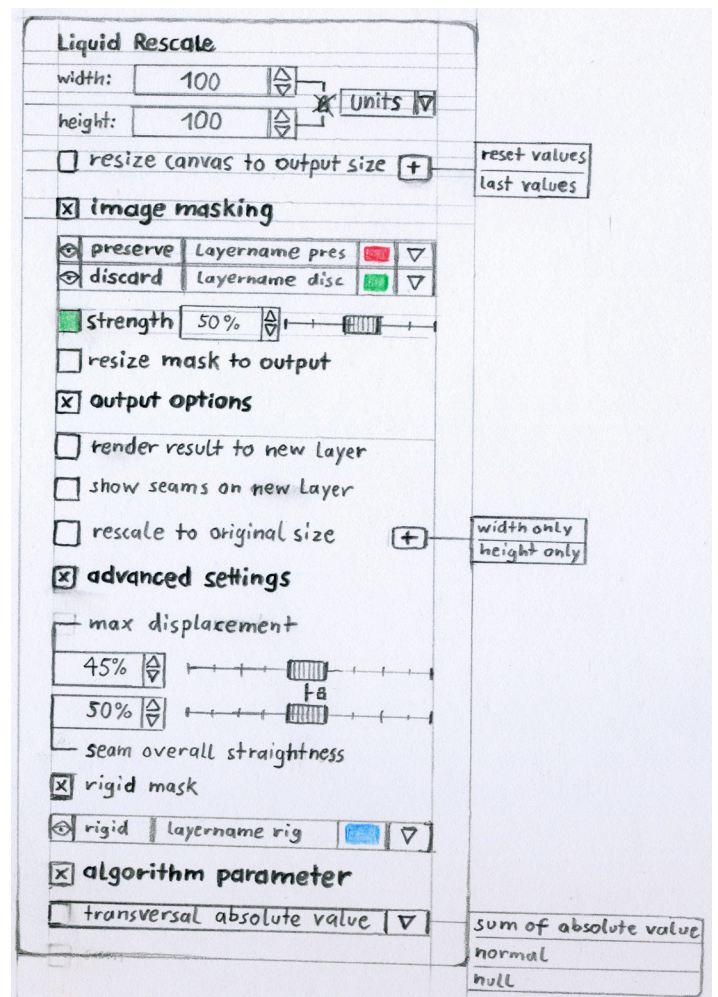 Liquid Rescale
width: 100
height: 100
units
resize canvas to output size +
reset values
last values
image masking
preserve layername pres
discard layername disc
strength 50%
resize mask to output
output options
render result to new layer
show seams on new layer
rescale to original size +
width only
height only
advanced settings
max displacement
45%
50%
seam overall straightness
rigid mask
rigid layername rig
algorithm parameter
transversal absolute value
sum of absolute value
normal
null